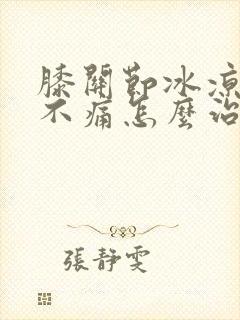 膝關節冰涼
不痛怎麼治
張靜雯